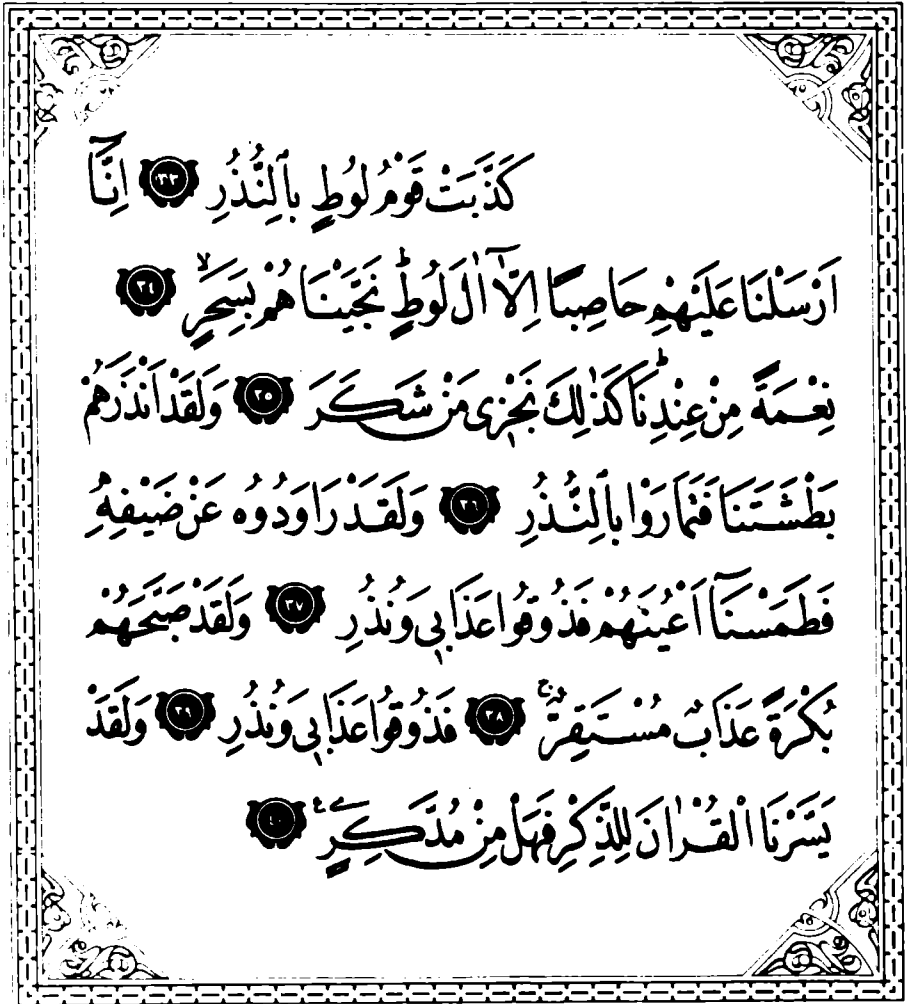 كَذَّبَتْ قَوْمُ لُوطٍ بِالنُّذُرِ ﴿٣٣﴾ اِنَّٓا
اَرْسَلْنَا عَلَيْهِمْ حَاصِبًا اِلَّٓا اٰلَ لُوطٍۜ نَجَّيْنَاهُمْ بِسَحَرٍۙ ﴿٣٤﴾
نِعْمَةً مِنْ عِنْدِنَاۜ كَذٰلِكَ نَجْزِى مَنْ شَكَرَ ﴿٣٥﴾ وَلَقَدْ اَنْذَرَهُمْ
بَطْشَتَنَا فَتَمَارَوْا بِالنُّذُرِ ﴿٣٦﴾ وَلَقَدْ رَاوَدُوهُ عَنْ ضَيْفِهٖ
فَطَمَسْنَٓا اَعْيُنَهُمْ فَذُوقُوا عَذَابٖى وَنُذُرِ ﴿٣٧﴾ وَلَقَدْ صَبَّحَهُمْ
بُكْرَةً عَذَابٌ مُسْتَقِرٌّۚ ﴿٣٨﴾ فَذُوقُوا عَذَابٖى وَنُذُرِ ﴿٣٩﴾ وَلَقَدْ
يَسَّرْنَا الْقُرْاٰنَ لِلذِّكْرِ فَهَلْ مِنْ مُدَّكِرٍ۟ ﴿٤٠﴾